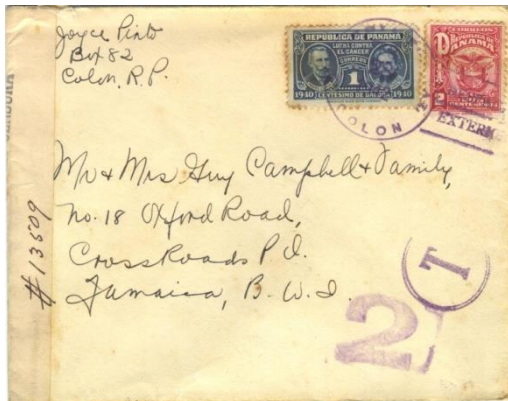 Joyce Pinto
Box 82
Colon, R.P.
REPÚBLICA DE PANAMA
LUCHA CONTRA
EL CÁNCER
CORREOS
1
1940 CENTESIMO DE BALBOA 1940
CORREOS
PANAMA
1/2
COLON
EXTERIOR
Mr & Mrs Guy Campbell & Family,
No. 18 Oxford Road,
CrossRoads P.O.
Jamaica, B.W.I.
CENSURA
#13509
T
2